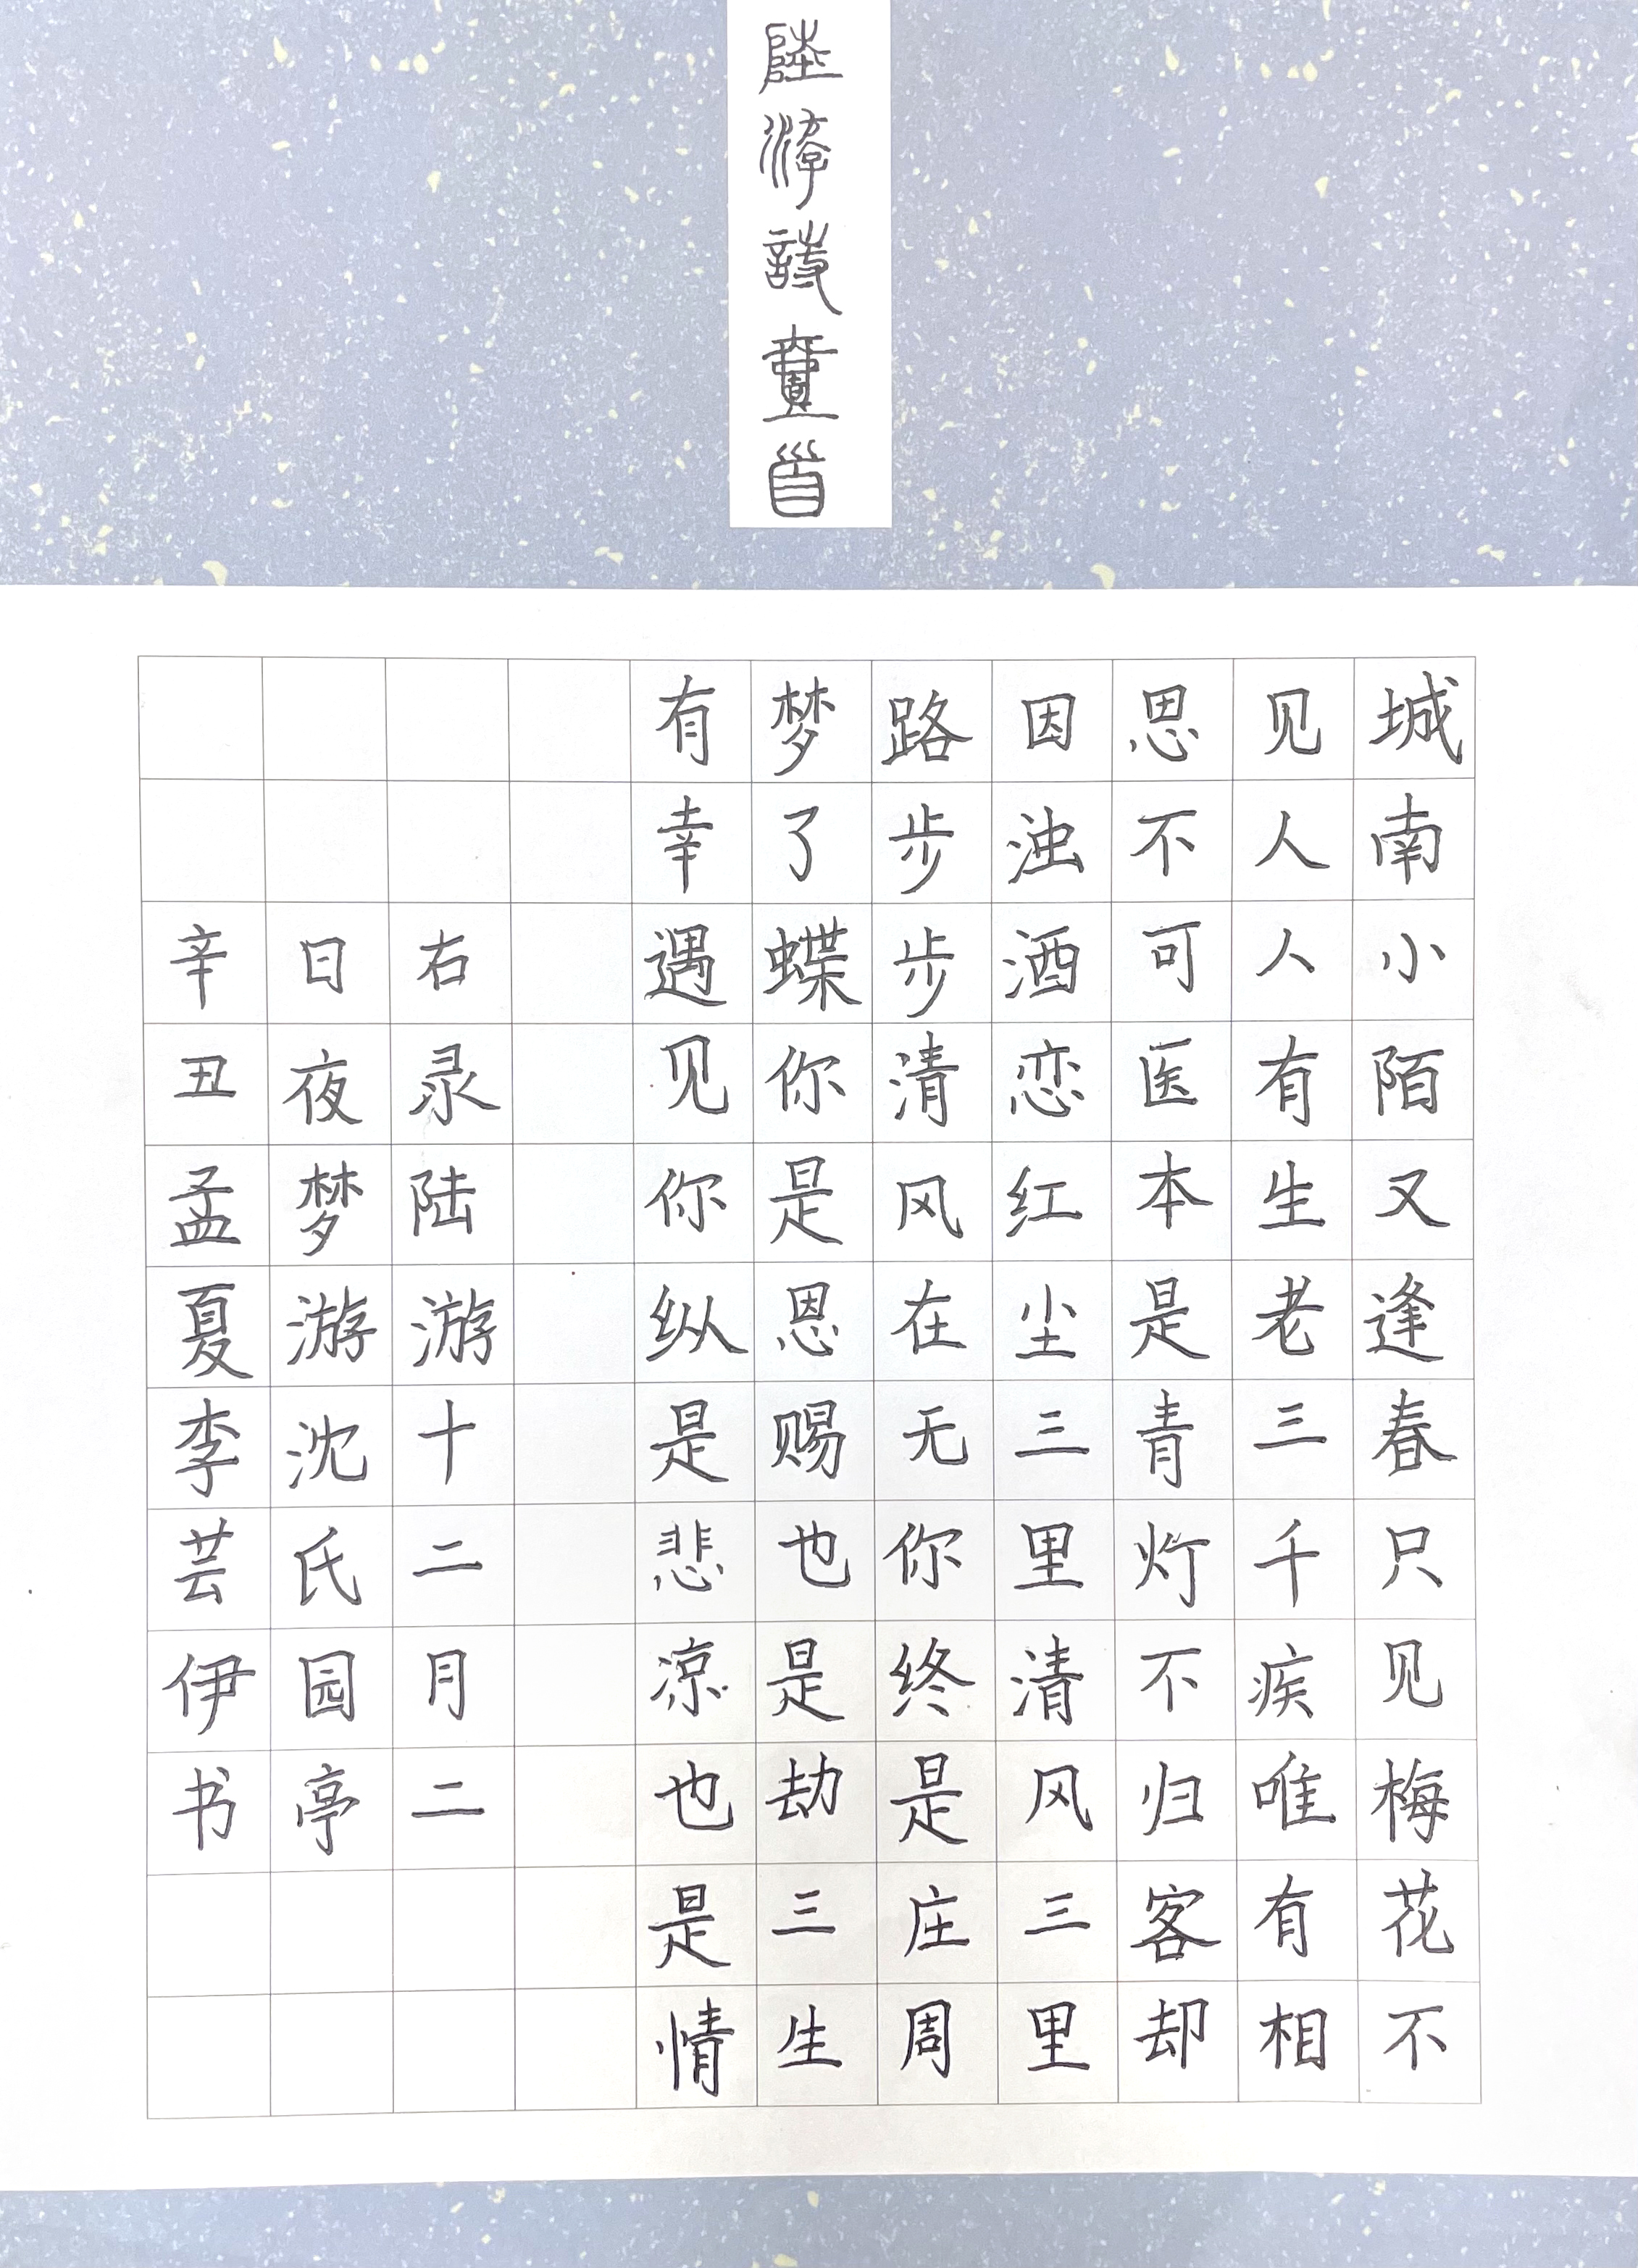 陸游詩壹首
城南小陌又逢春只见梅花不
见人人有生老三千疾唯有相
思不可医本是青灯不归客却
因浊酒恋红尘三里清风三里
路步步清风在无你终是庄周
梦了蝶你是恩赐也是劫三生
有幸遇见你纵是悲凉也是情
右录陆游十二月二
日夜梦游沈氏园亭
辛丑孟夏李芸伊书